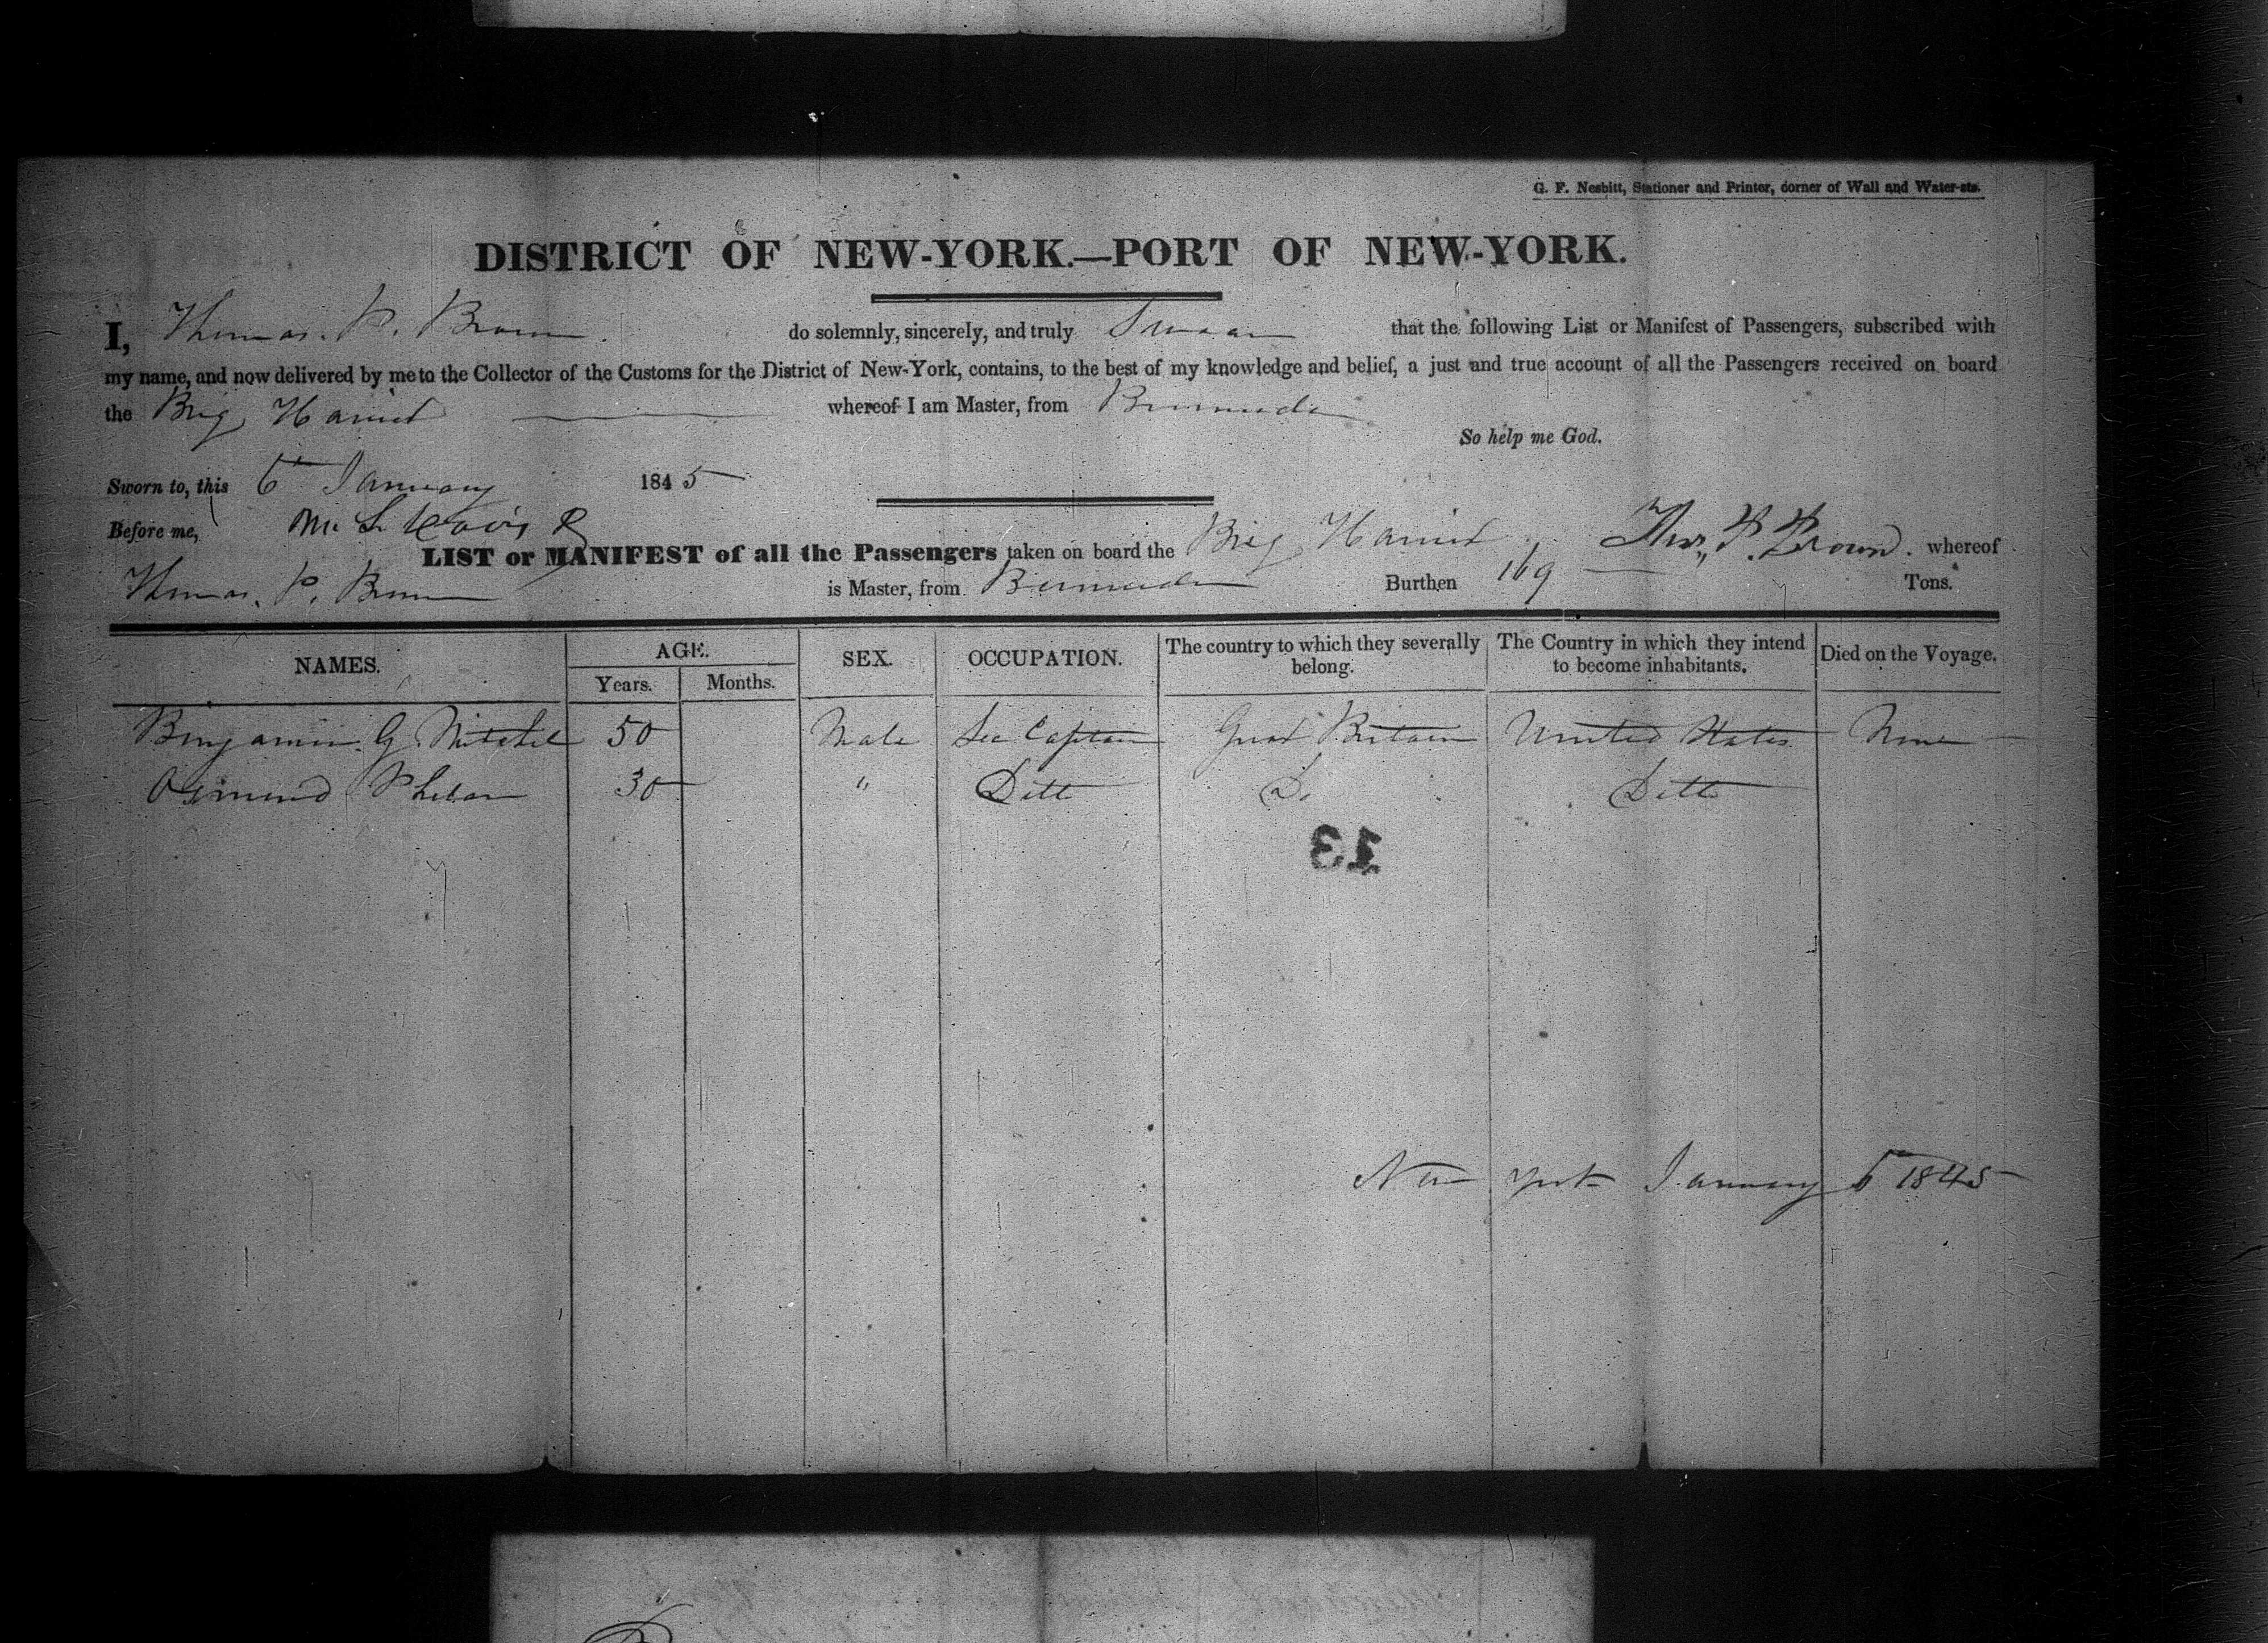 G. F. Nesbitt, Stationer and Printer, corner of Wall and Water-sts.
DISTRICT OF NEW-YORK.—PORT OF NEW-YORK.
I, Thomas. P. Brown. do solemnly, sincerely, and truly Swear that the following List or Manifest of Passengers, subscribed with
my name, and now delivered by me to the Collector of the Customs for the District of New-York, contains, to the best of my knowledge and belief, a just and true account of all the Passengers received on board
the Brig Harriet whereof I am Master, from Bermuda
So help me God.
Sworn to, this 6th January 1845
Before me,
Thos. P. Brown.
LIST or MANIFEST of all the Passengers taken on board the Brig Harriet whereof
Thomas. P. Brown is Master, from Bermuda Burthen 169 Tons.
NAMES. AGE. SEX. OCCUPATION. The country to which they severally belong. The Country in which they intend to become inhabitants. Died on the Voyage.
Years. Months.
Benjamin. G. Mitchel 50 Male Sea Captain Great Britain United States None
Osmond Phelan 30 " Ditto Do Ditto
13
New York January 6 1845